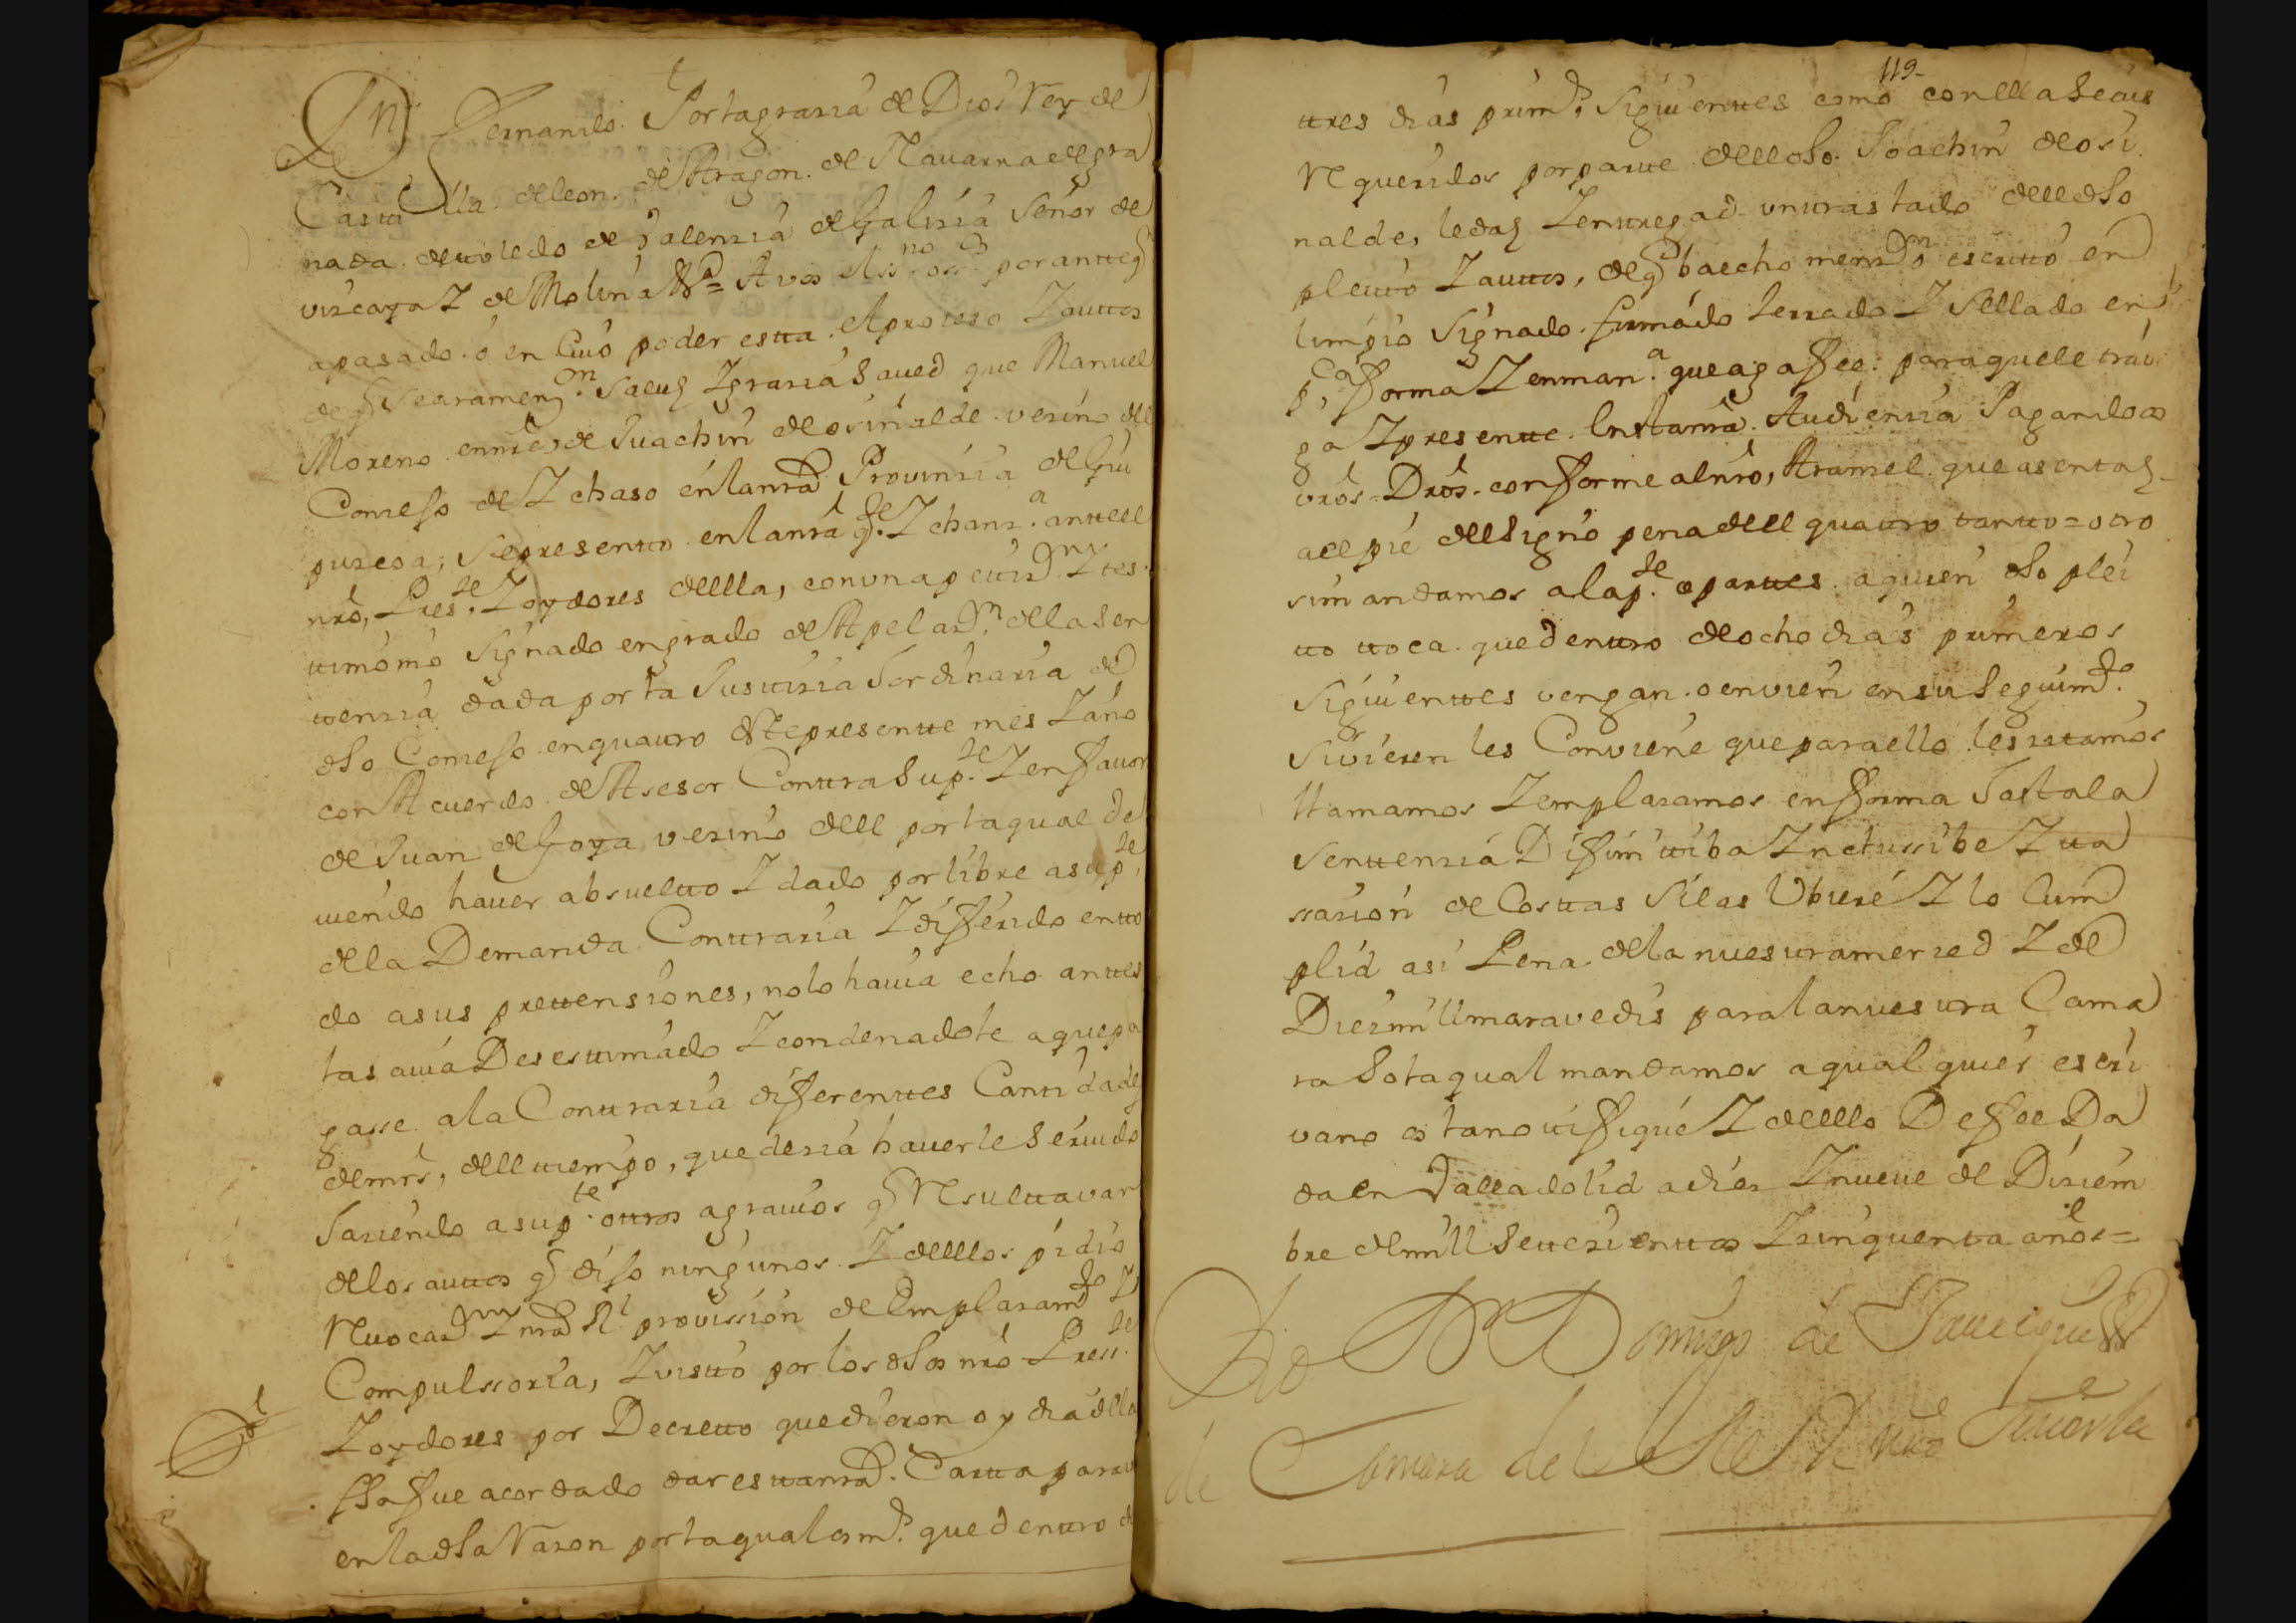 Dn Fernando Por la grazia de Dios Rey de
Castilla. de leon. de Aragon. de Nauarra del gra
nada. de toledo de Valenzia de Galizia Señor de
vizcaya Z de Molina &ª = A vos el ssno o ssnos por ante qn
a pasado. o en Cuio poder esta. el prozeso Z autos
de q se ara menzon. Salud Z grazia Saued que Manuel
Moreno en nre de Juachin de osinalde. vezino del
Conzejo de Z chaso en la nra Provinzia de Gui
puzcoa; se presento en la nra Z chanza. ante el
nro, Preste, Z oydores de ella, con vna petizn Z tes
timonio Signado en grado de Apelazn de la Sen
tenzia dada por la Justizia Hordinaria de
dho Conzejo en quatro deste presente mes Z año
con Acuerdo de Asesor Contra Su pte Z en fauor
de Juan de Goya vezino de el por la qual de
uiendo hauer absuelto Z dado por libre a su pte
de la Demanda Contraria Z diferido en tto
do a sus pretensiones, no lo hauia echo antes
las auia Desestimado Z condenadole a que pa
gasse. a la Contraria diferentes Cantidades
de mrs, del tiempo, que dezia hauerle Seruido
Haziendo a su pte otros agrauios q Resultauan
de los autos q dijo ningunos. Z de ellos pidio
Reuocazn Z nra Rl provission de Emplazamto Z
Compulssoria, Z visto por los dhos nro Presste
Z oydores por Decreto que dieron oy dia de la
fha fue acordado dar esta nra. Carta para vos
en la dha Razon por la qual os mos que dentro de
119
tres dias primos Siguientes como con ella Seais
Requeridos por parte de el dho Joachin de osi
nalde, le daz Z entregad vn traslado de el dho
pleito Z autos, de q ba echo menzon escrito en
limpio Signado. firmado zerrado Z Sellado en
pca forma Z en mana. que aga fee: para que le trai
ga Z presente. En la nra. Audienzia Pagandoos
vros Dros. conforme al nro, Aranzel que asentaz
al pie del Signo pena de el quatro tanto = otro
si mandamos a la pte o partes a quien dho plei
to toca que dentro de ocho dias primeros
Siguientes vengan o envien en su Seguimto
Si vieren les Conviene que para ello les zitamos
llamamos Z emplazamos en forma Hasta la
Sentenzia Difinitiba Znclussibe Z ta
ssazion de Costas Si las Vbiere Z lo Cum
plid asi Pena de la nuestra merzed Z de
Diez mill maravedis para la nuestra Cama
ra So la qual mandamos a qual quier escri
vano os la notifique Z de ello De fee Da
da en Valladolid a diez Z nueue de Diziem
bre de mill Setezientos Z zinquenta años =
Domingo de
de Camara del